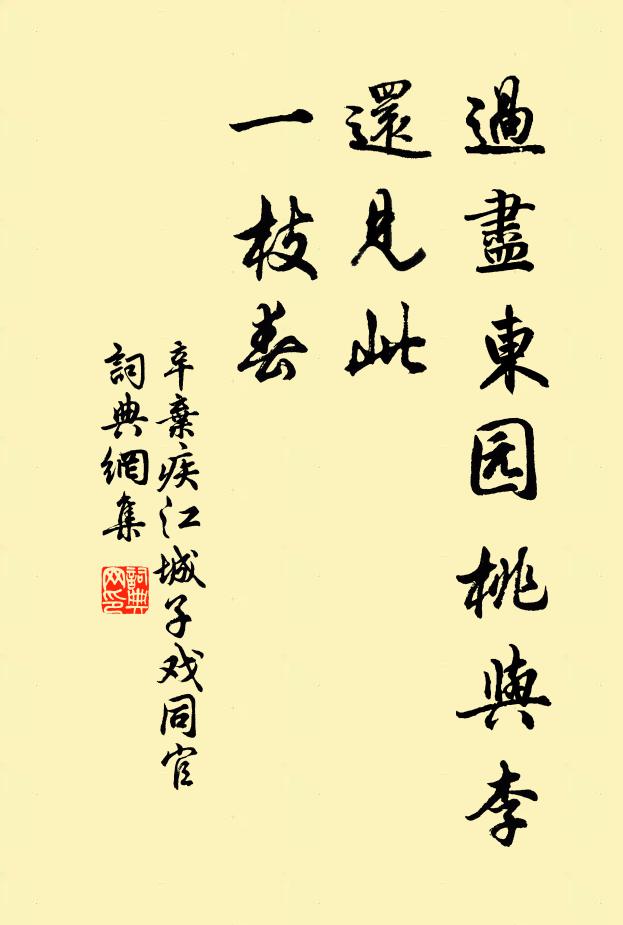 過盡東园桃與李
還見此
一枝春
辛棄疾江城子戏同官
詞典網集
詞典网印